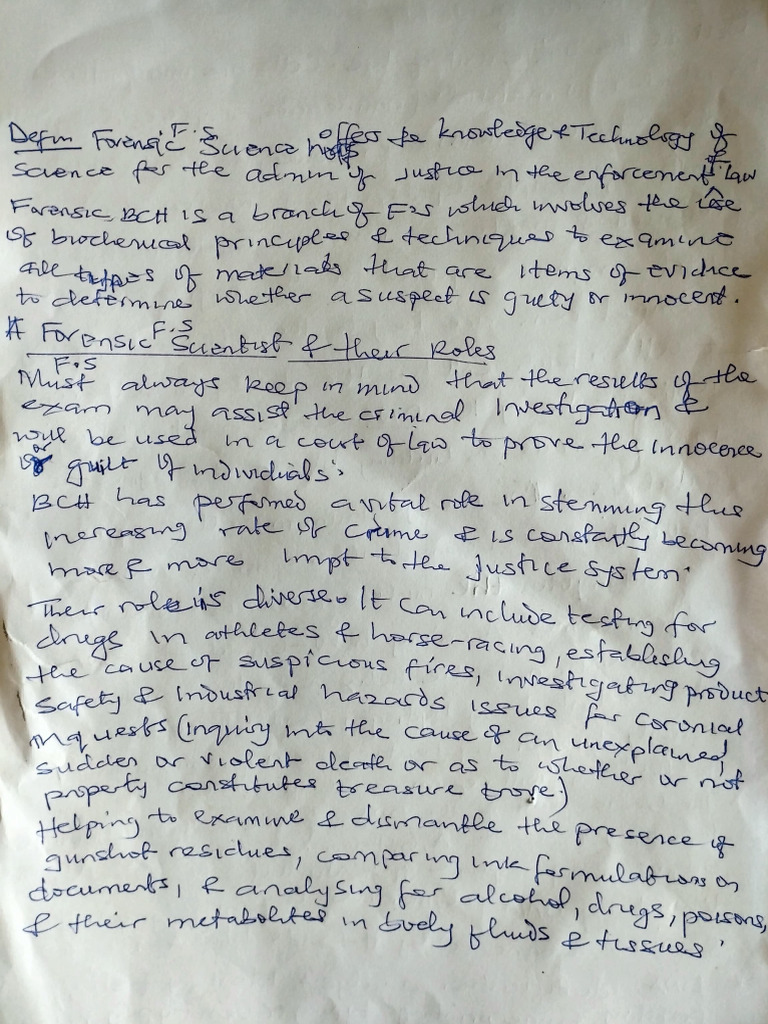 Defn Forensic F.S Science offers the knowledge & Technology of
Science for the admin of Justice in the enforcement of law
Forensic BCH is a branch of F.S which involves the use
of biochemical principles & techniques to examine
all types of materials that are items of evidence
to determine whether a suspect is guilty or innocent.
# Forensic F.S Scientist & their Roles
F.S
Must always keep in mind that the results of the
exam may assist the criminal Investigation &
will be used in a court of law to prove the innocence
or guilt of individials.
BCH has performed a vital role in stemming this
increasing rate of crime & is constantly becoming
more & more impt to the Justice system.
Their role is diverse. It can include testing for
drugs in athletes & horse-racing, establishing
the cause of suspicious fires, investigating product
safety & Industrial hazards issues for coronial
inquests (inquiry into the cause of an unexplained,
sudden or violent death or as to whether or not
property constitutes treasure trove)
Helping to examine & dismanthe the presence of
gunshot residues, comparing ink formulations on
documents, & analysing for alcohol, drugs, poisons,
& their metabolites in body fluids & tissues.